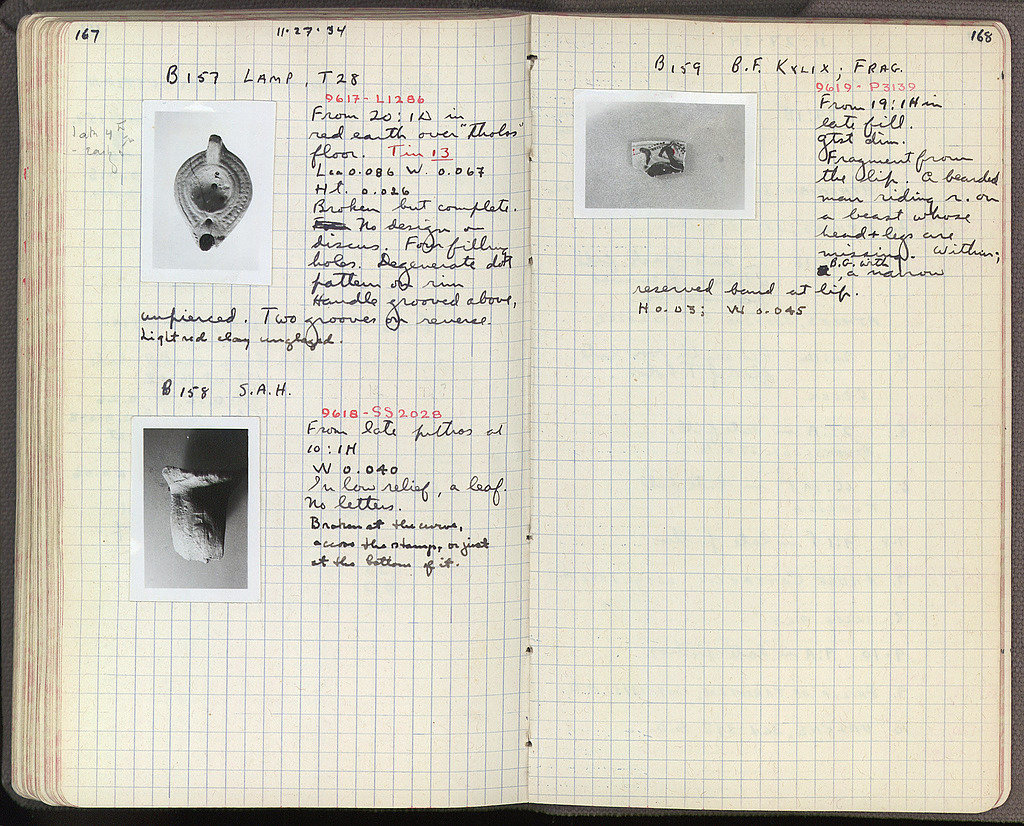 167
11·27·34
B 157 LAMP, T28
9617-L1286
From 20:1Δ in
red earth over "Tholos"
floor. Tin 13
L. 0.086 W. 0.067
Ht. 0.026
Broken but complete.
No design on
discus. Four filling
holes. Degenerate dot
pattern on rim
Handle grooved above,
unpierced. Two grooves on reverse.
Light red clay unglazed.
late 4th
- early
B 158 S.A.H.
9618-SS2028
From late pithos at
10:1H
W 0.040
In low relief, a leaf.
No letters.
Broken at the curve,
across the stamp, or just
at the bottom of it.
168
B 159 B.F. KYLIX; FRAG.
9619-P3139
From 19:1H in
late fill.
gtst dim.
Fragment from
the lip. A bearded
man riding r. on
a beast whose
head + legs are
missing. Within;
B.G. with
a narrow
reserved band at lip.
H 0.03; W 0.045